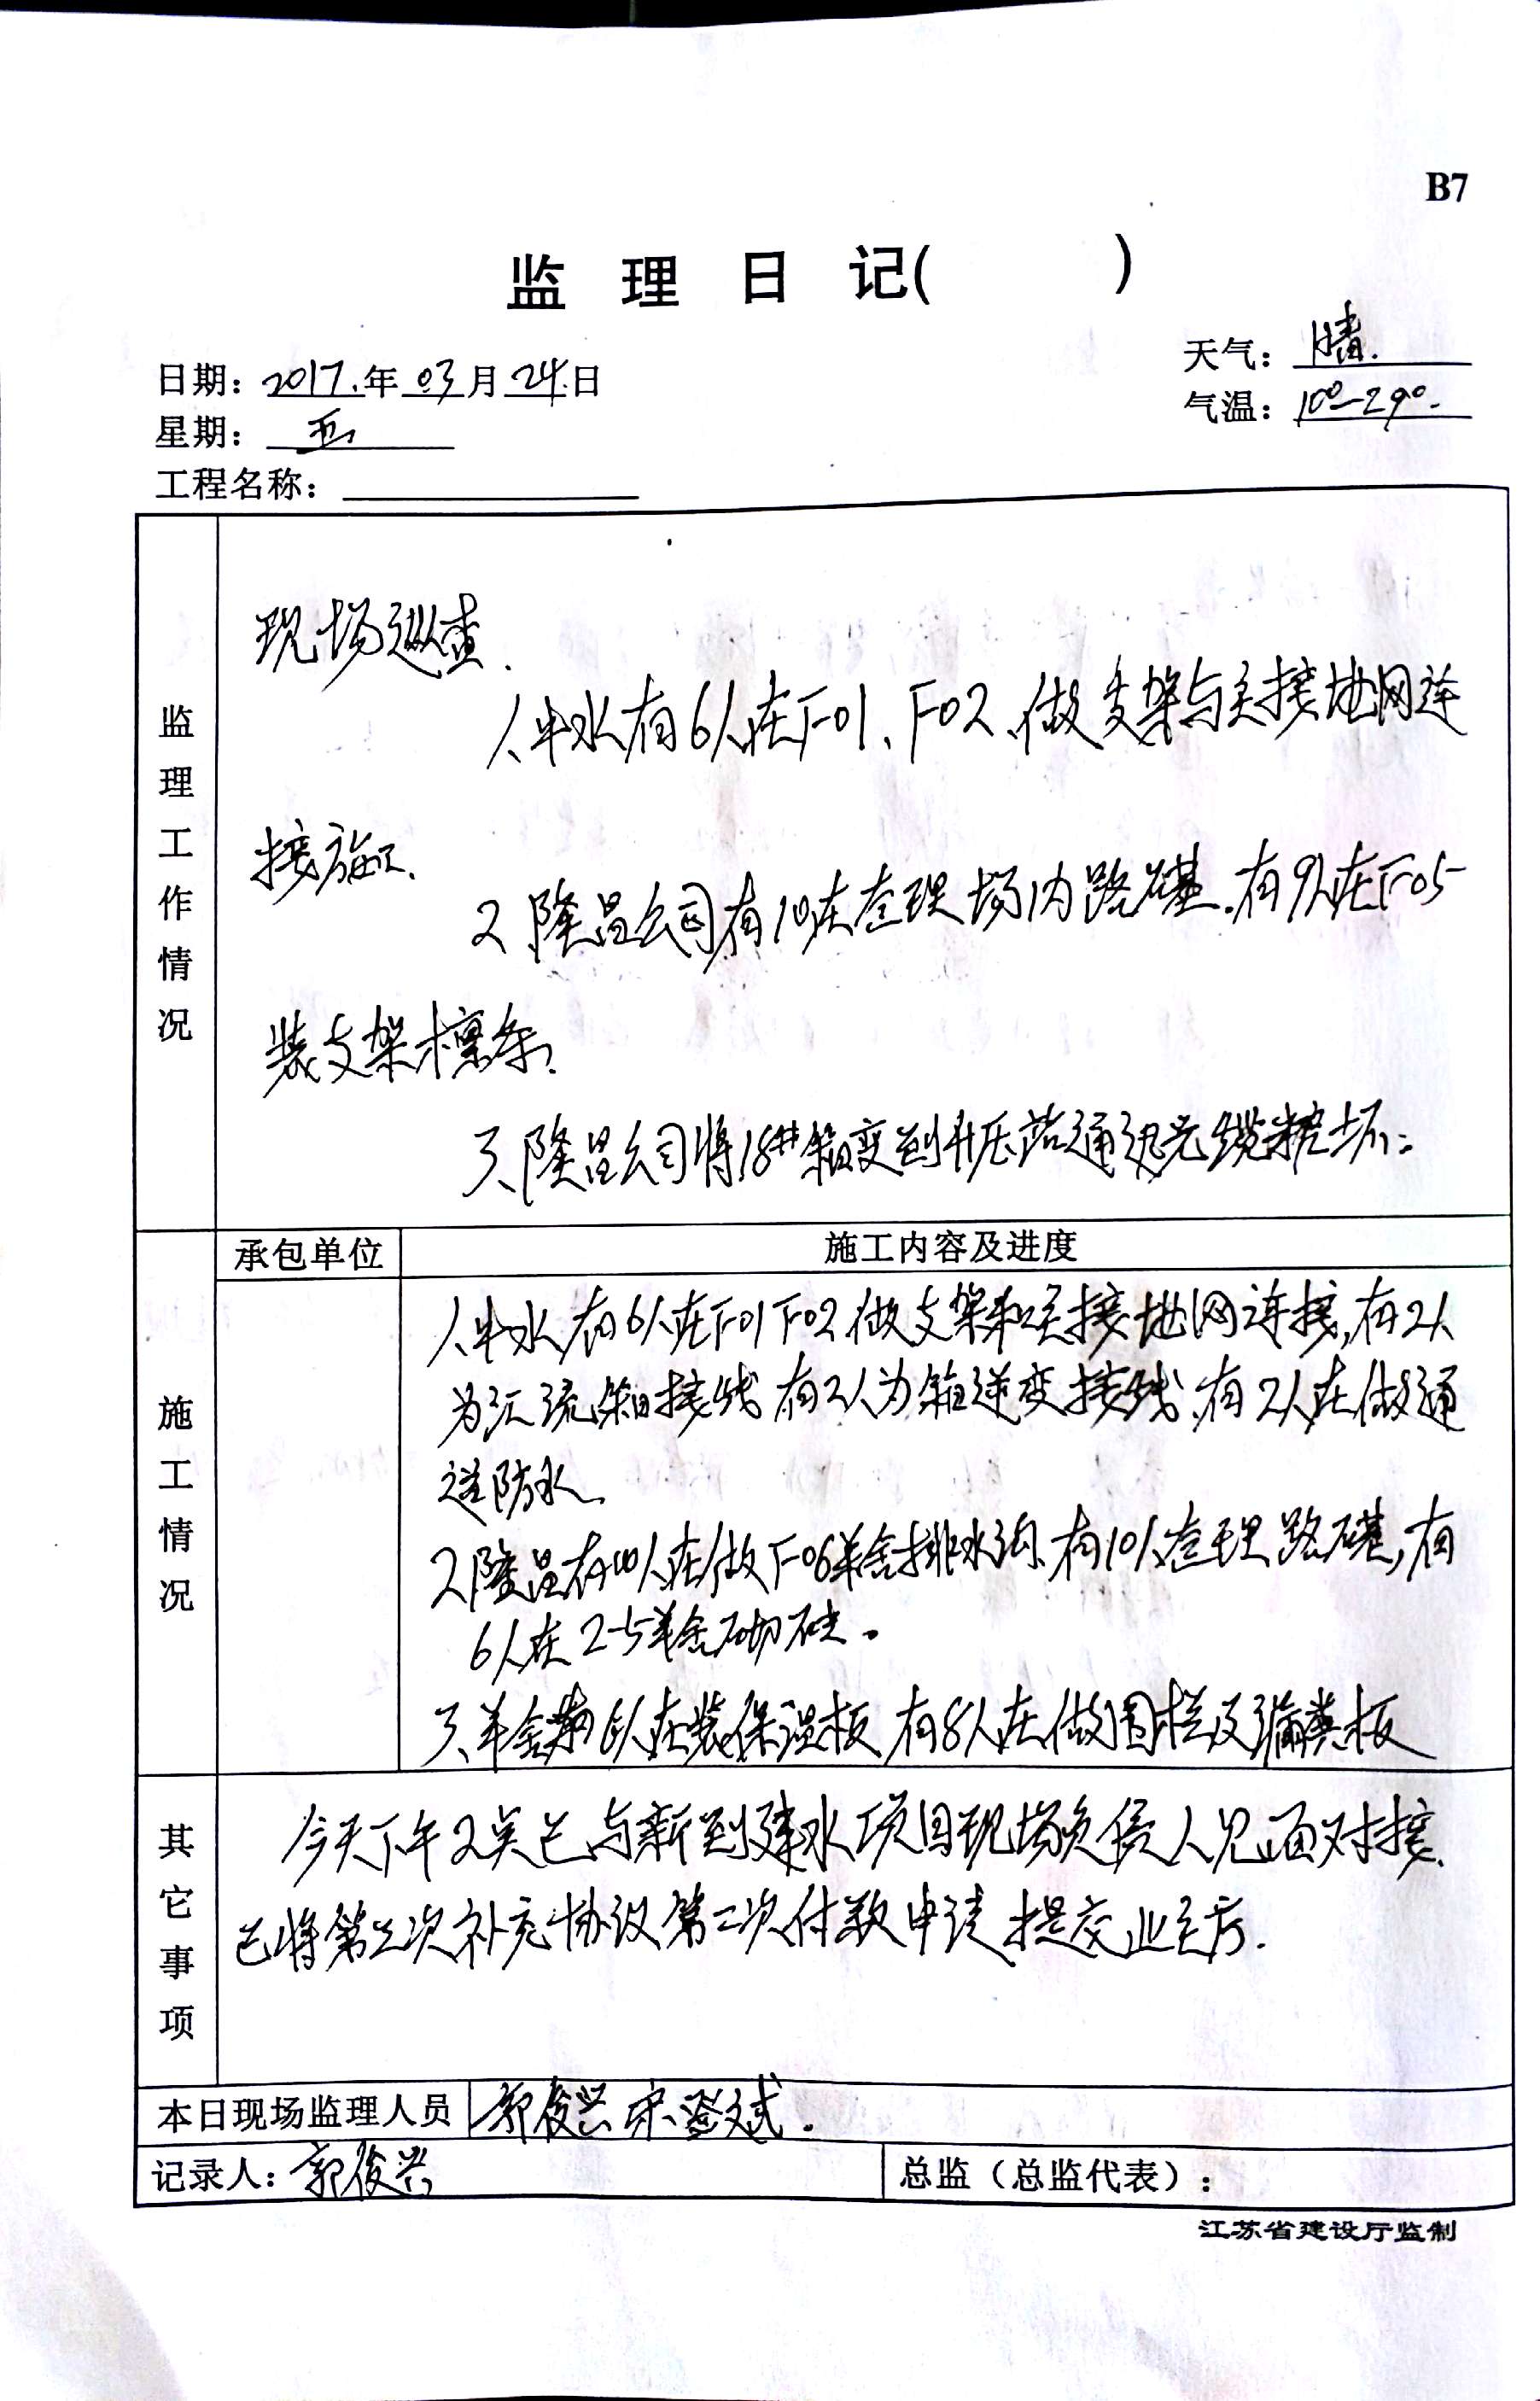 B7
监 理 日 记( )
日期: 2017.年 03月 24日
天气: 晴.
星期: 五
气温: 10°-29°.
工程名称:
监理工作情况
现场巡查.
1、中水有6人在F01、F02、做支架与主接地网连
接施工.
2、隆昌公司有10人在查理场内路基.有9人在F05
装支架檩条.
3、隆昌公司将18#箱变到升压站通讯光缆挖坏.
施工情况
承包单位
施工内容及进度
1、中水有6人在F01 F02做支架和主接地网连接,有2人
为汇流箱接线 有2人为箱逆变接线,有2人在做通
道防水.
2、隆昌有10人在做F06羊舍排水沟.有10人在查理路基,有
6人在2-5羊舍砌砖。
3、羊舍 6人在装保温板 有8人在做围栏及漏粪板
其它事项
今天下午2点已与新到建水项目现场负责人见面对接.
已将第三次补充协议第二次付款申请提交业主方.
本日现场监理人员 郭俊兴 宋 斌.
记录人: 郭俊兴
总监(总监代表):
江苏省建设厅监制